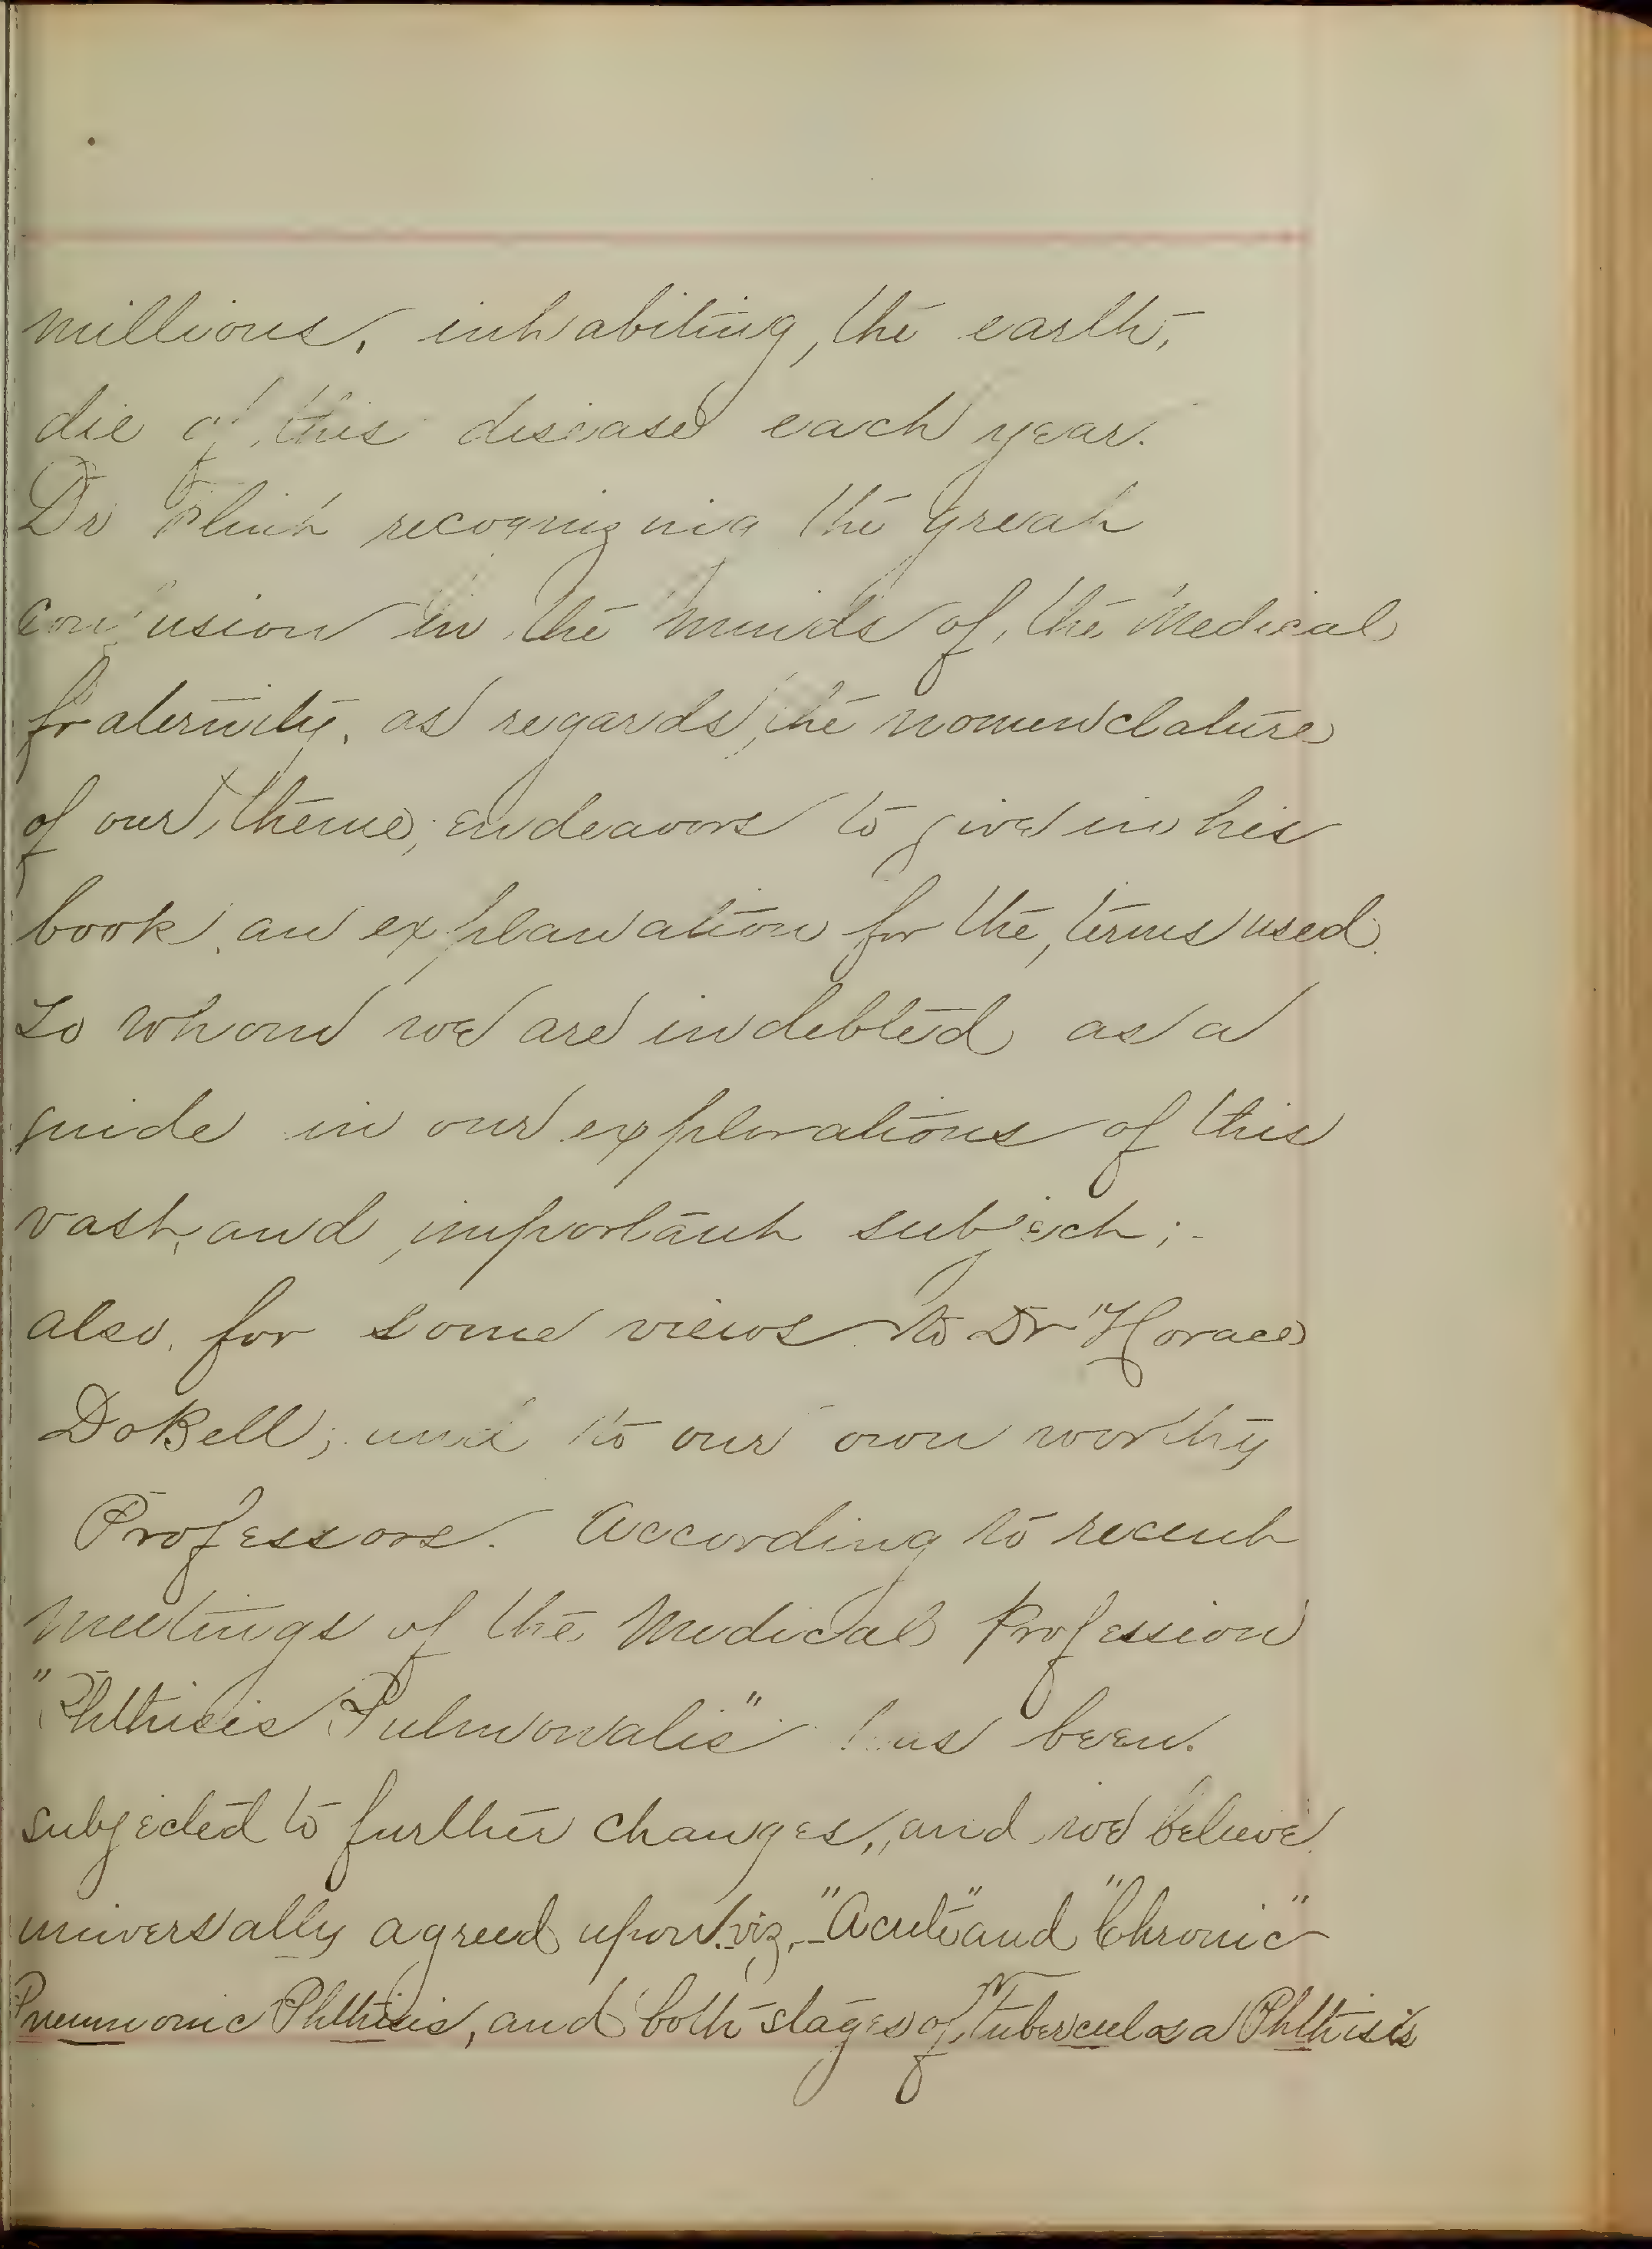 millions, inhabiting, the earth,
die of this disease each year.
Dr Flint recognizing the great
confusion in the minds of, the Medical
fraternity, as regards, the nomenclature
of our, theme, endeavors to give in his
book, an explanation for the, terms used.
To whom we are indebted as a
guide in our explorations of this
vast, and, important subject;-
also, for some views to Dr Horace
DoBell; and to our own worthy
Professors. According to recent
meetings of the Medical Profession
"Phthisis Pulmonalis" has been.
subjected to further changes, and we believe
universally agreed upon. viz,- "Acute" and "Chronic"
Pneumonic Phthisis, and both stages of, Tuberculosa Phthisis